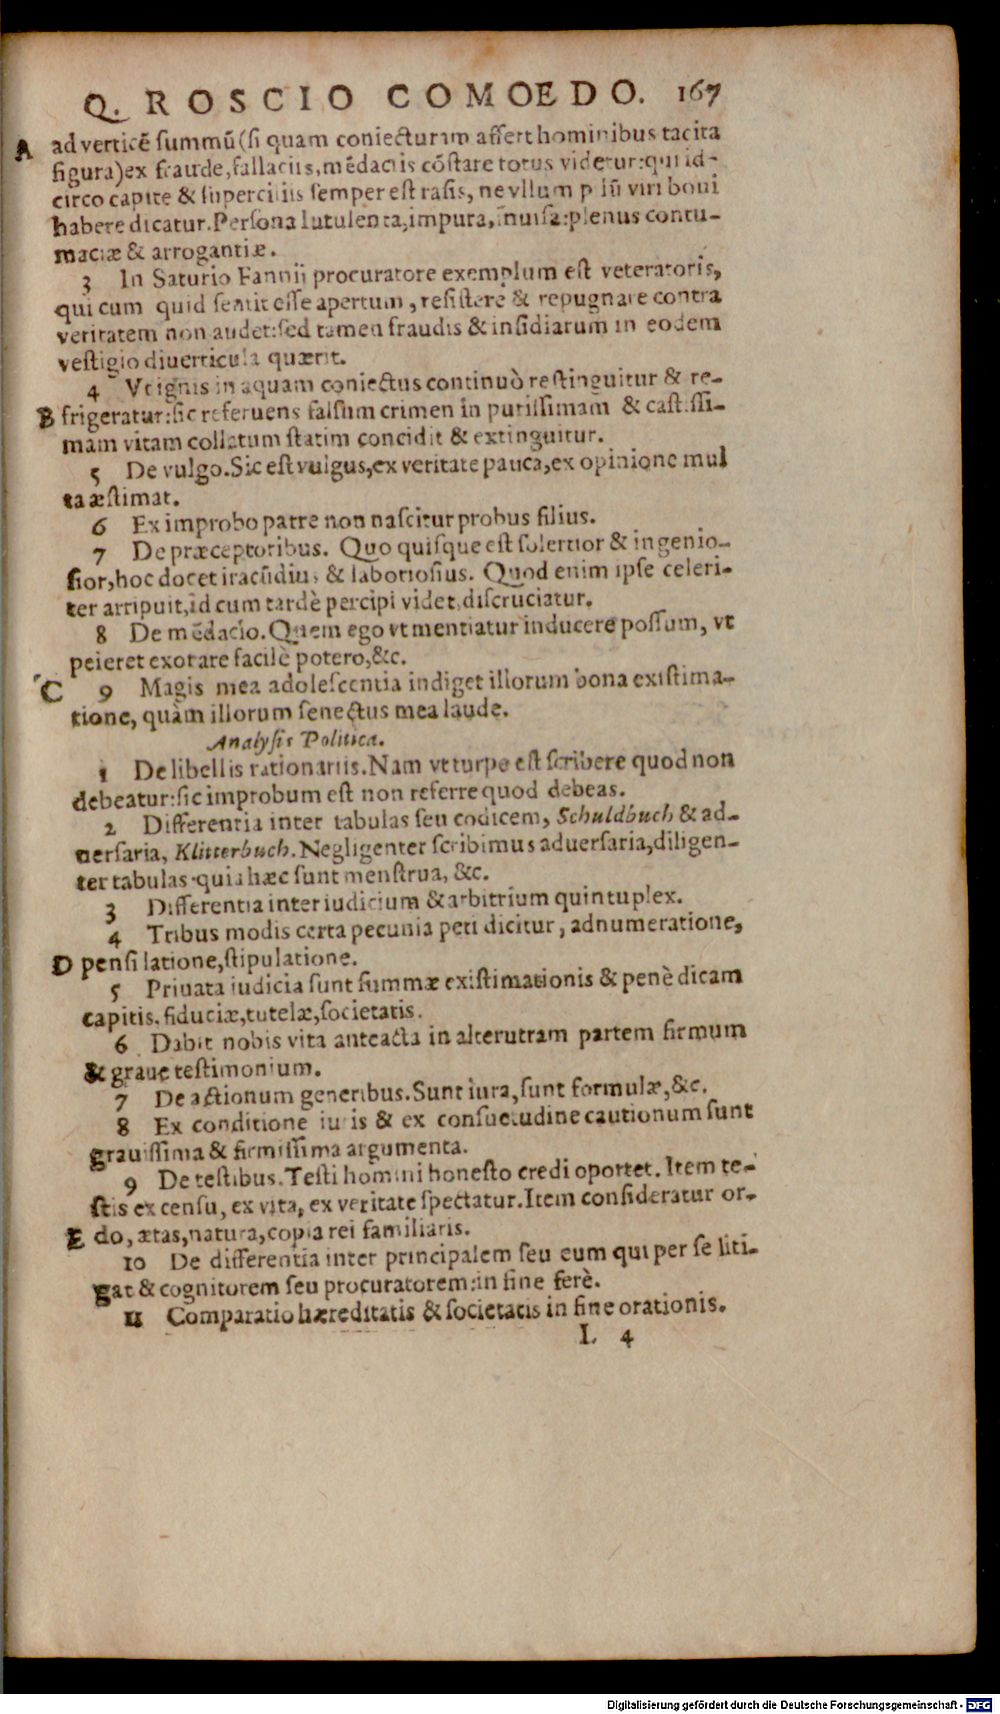 Q. ROSCIO COMOEDO. 167
A ad verticē summū(si quam coniecturam affert hominibus tacita
figura)ex fraude,fallaciis,mēdaciis cōstare totus videtur:qui id-
circo capite & superciliis semper est rasis, ne vllum pilū viri boni
habere dicatur.Persona lutulenta,impura,inuisa:plenus contu-
maciæ & arrogantiæ.
3 In Saturio Fannij procuratore exemplum est veteratoris,
qui cum quid sentit esse apertum, resistere & repugnare contra
veritatem non audet:sed tamen fraudis & insidiarum in eodem
vestigio diuerticula quærit.
4 Vt ignis in aquam coniectus continuò restinguitur & re-
B frigeratur:sic referuens falsum crimen in purissimam & castissi-
mam vitam collatum statim concidit & extinguitur.
5 De vulgo.Sic est vulgus,ex veritate pauca,ex opinione mul
ta æstimat.
6 Ex improbo patre non nascitur probus filius.
7 De præceptoribus. Quo quisque est solertior & ingenio-
sior,hoc docet iracūdius & laboriosius. Quod enim ipse celeri-
ter arripuit,id cum tardè percipi videt,discruciatur.
8 De mēdacio.Quem ego vt mentiatur inducere possum, vt
peieret exorare facilè potero,&c.
C 9 Magis mea adolescentia indiget illorum bona existima-
tione, quàm illorum senectus mea laude.
Analysis Politica.
1 De libellis rationariis.Nam vt turpe est scribere quod non
debeatur:sic improbum est non referre quod debeas.
2 Differentia inter tabulas seu codicem, Schuldbuch & ad-
uersaria, Klitterbuch.Negligenter scribimus aduersaria,diligen-
ter tabulas·quia hæc sunt menstrua, &c.
3 Differentia inter iudicium & arbitrium quintuplex.
4 Tribus modis certa pecunia peti dicitur, adnumeratione,
D pensi latione,stipulatione.
5 Priuata iudicia sunt summæ existimationis & penè dicam
capitis, fiduciæ,tutelæ,societatis.
6 Dabit nobis vita anteacta in alterutram partem firmum
& graue testimonium.
7 De actionum generibus.Sunt iura,sunt formulæ,&c.
8 Ex conditione iuris & ex consuetudine cautionum sunt
grauissima & firmissima argumenta.
9 De testibus.Testi homini honesto credi oportet. Item te-
stis ex censu, ex vita, ex veritate spectatur.Item consideratur or-
E do, ætas,natura,copia rei familiaris.
10 De differentia inter principalem seu eum qui per se liti-
gat & cognitorem seu procuratorem:in fine ferè.
11 Comparatio hæreditatis & societatis in fine orationis.
L 4
Digitalisierung gefördert durch die Deutsche Forschungsgemeinschaft - DFG